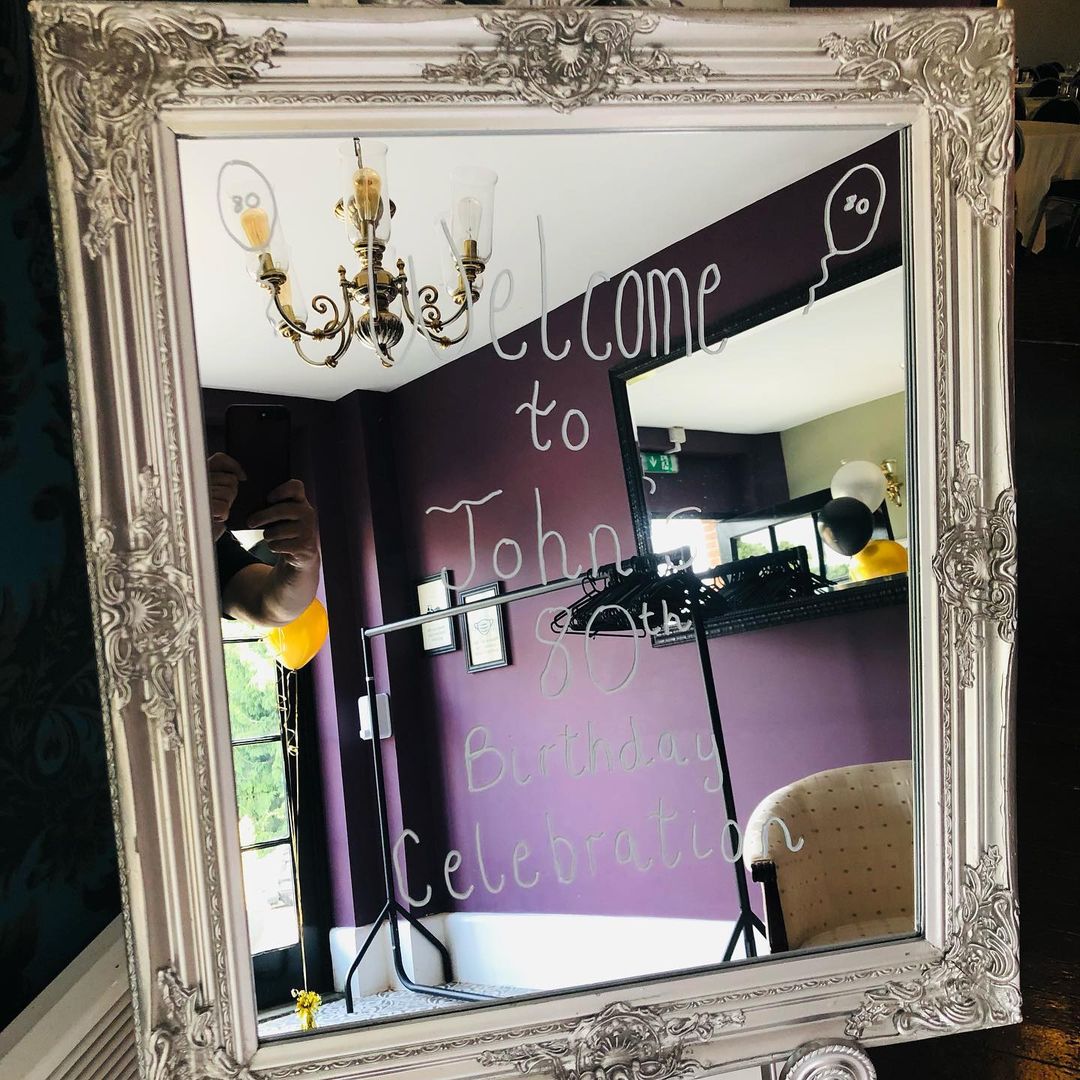 80
80
Welcome
to
John's
80th
Birthday
Celebration